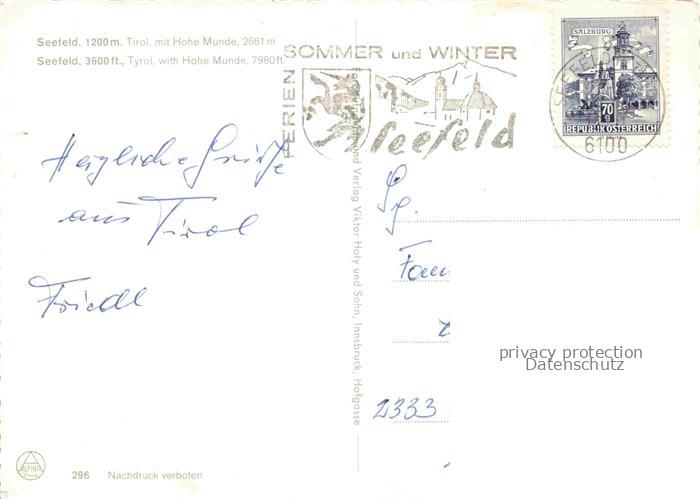 Seefeld, 1200 m, Tirol, mit Hohe Munde, 2661 m
Seefeld, 3600 ft., Tyrol, with Hohe Munde, 7980 ft.
FERIEN
SOMMER und WINTER
Seefeld
SALZBURG
70
g
REPUBLIK ÖSTERREICH
SEEFELD
6100
Herzliche Grüße
aus Tirol
Friedl
und Verlag Viktor Holy und Sohn, Innsbruck, Hofgasse
Fam
2333
privacy protection
Datenschutz
ALPINA
Druck
296 Nachdruck verboten